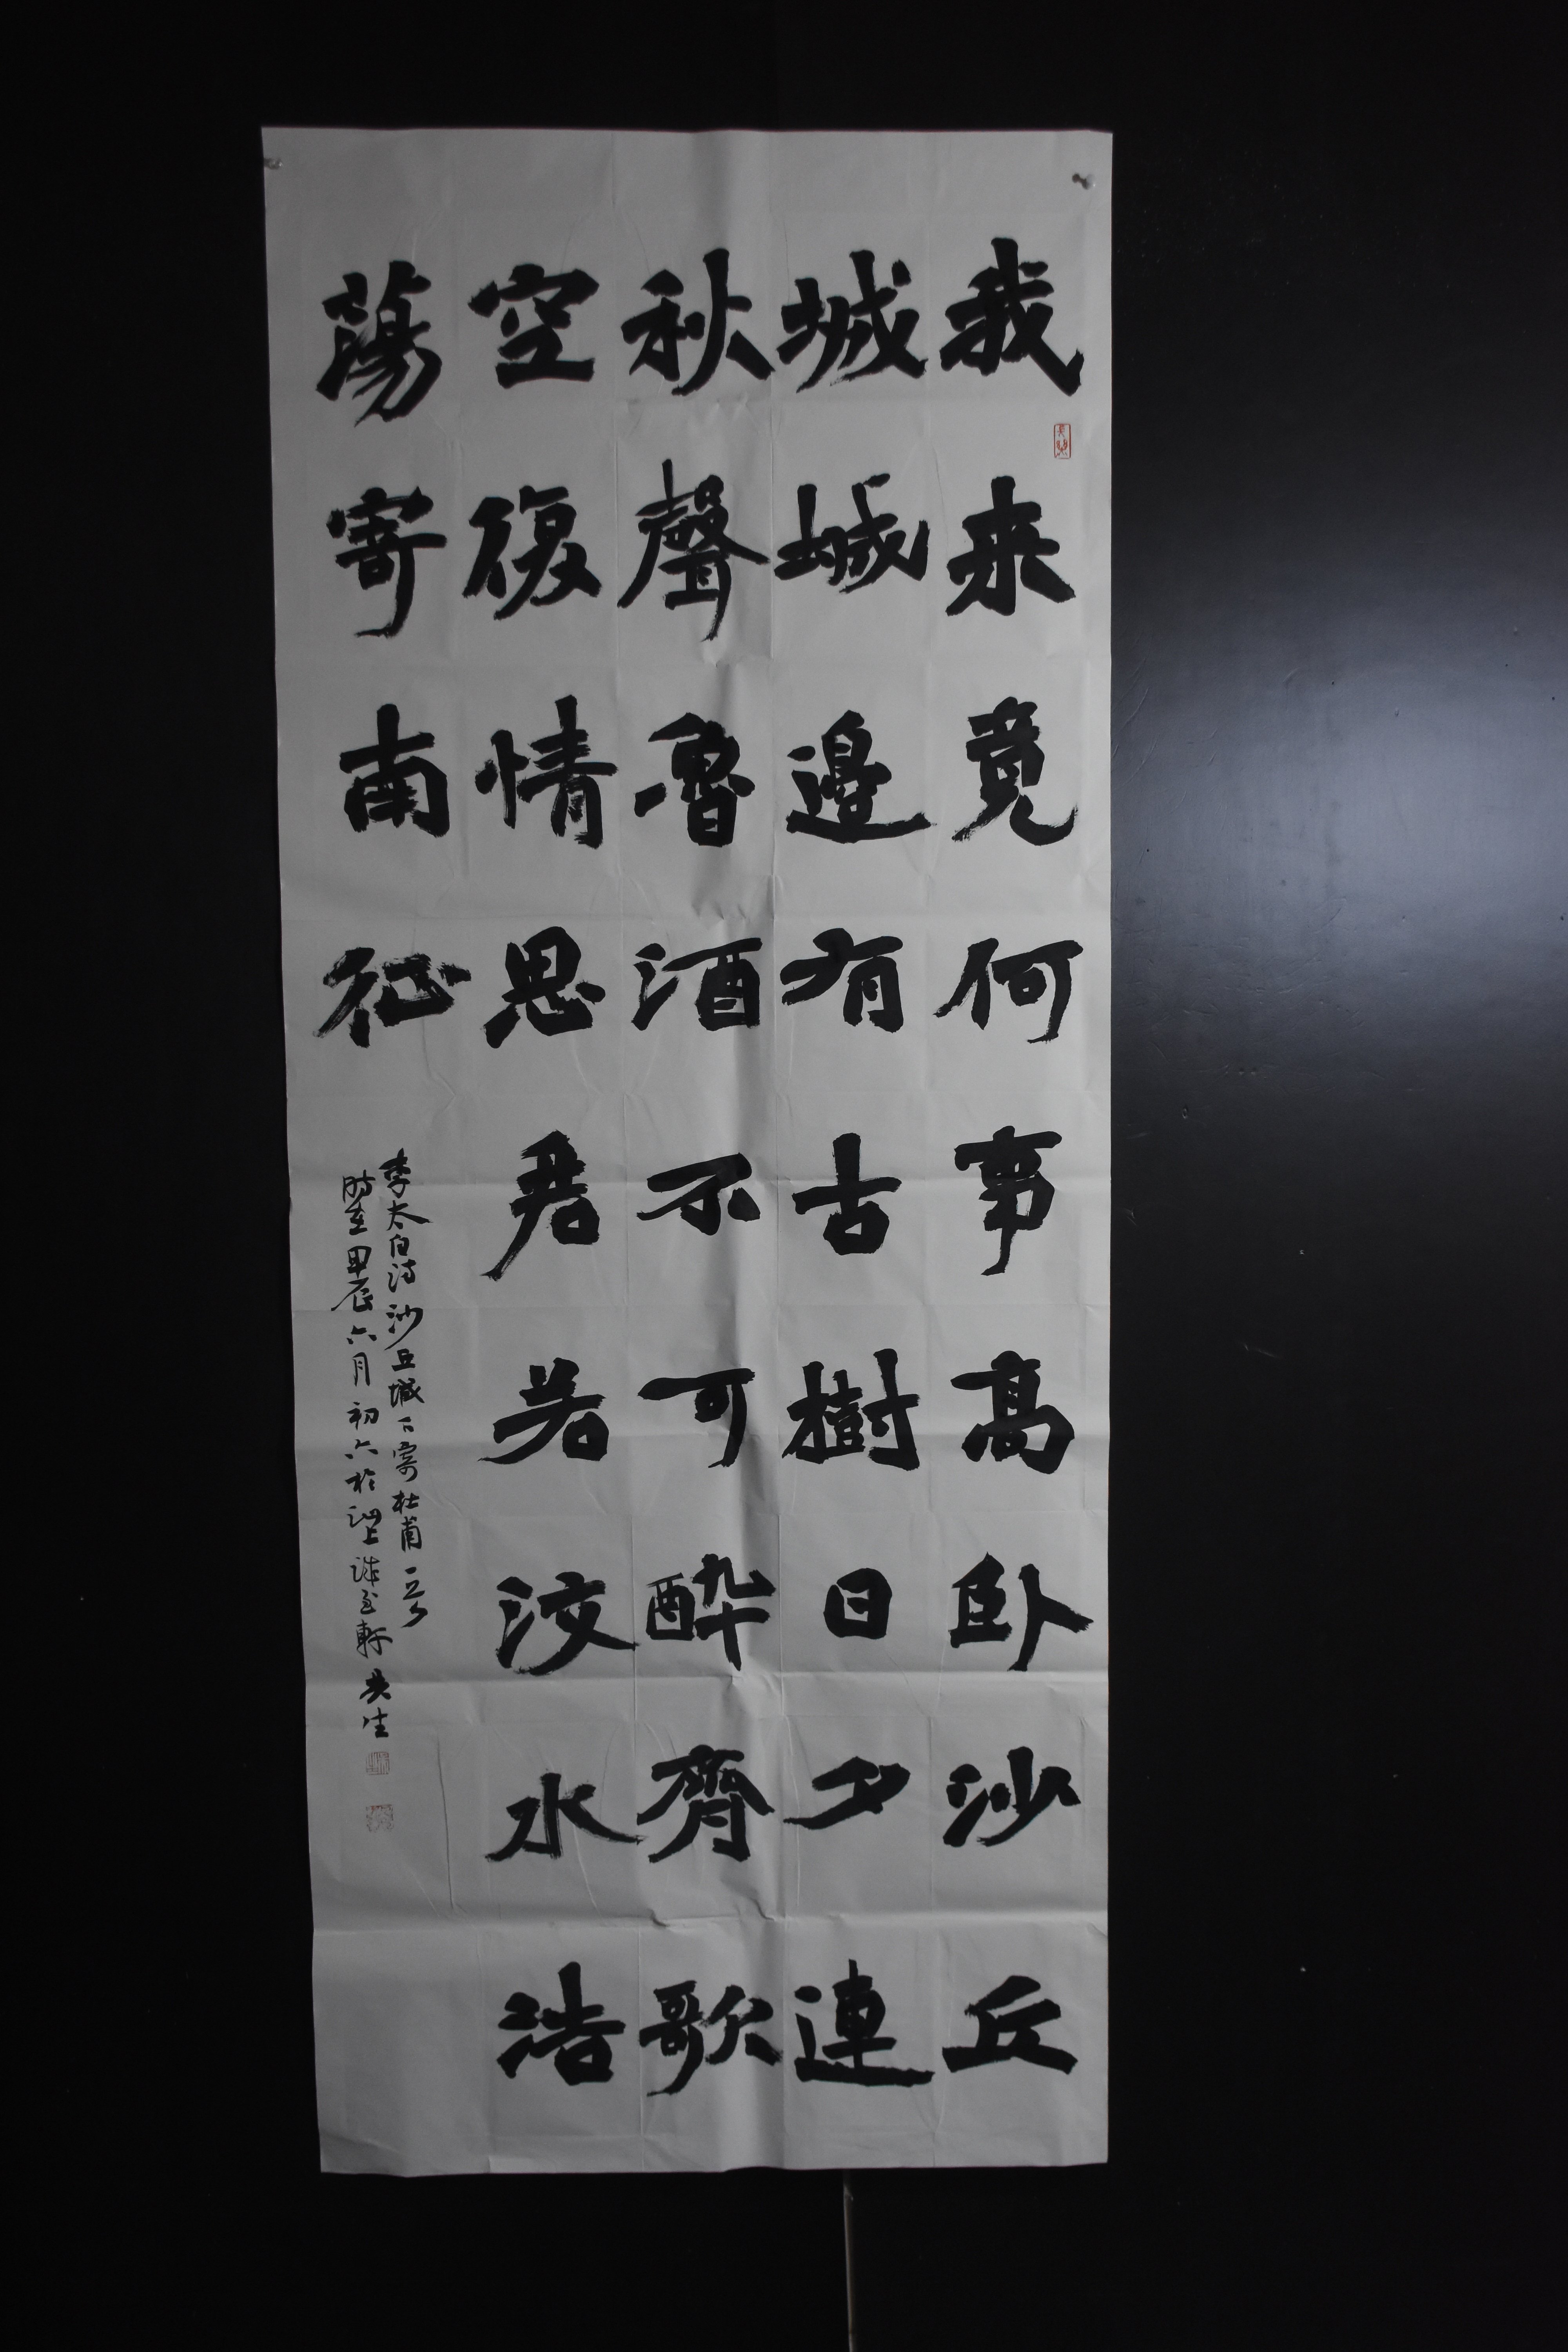 我来竟何事高卧沙丘
城城邊有古樹日夕連
秋聲魯酒不可醉齊歌
空復情思君若汶水浩
蕩寄南征
李太白詩沙丘城下寄杜甫一首
時在甲辰六月初六於泗上